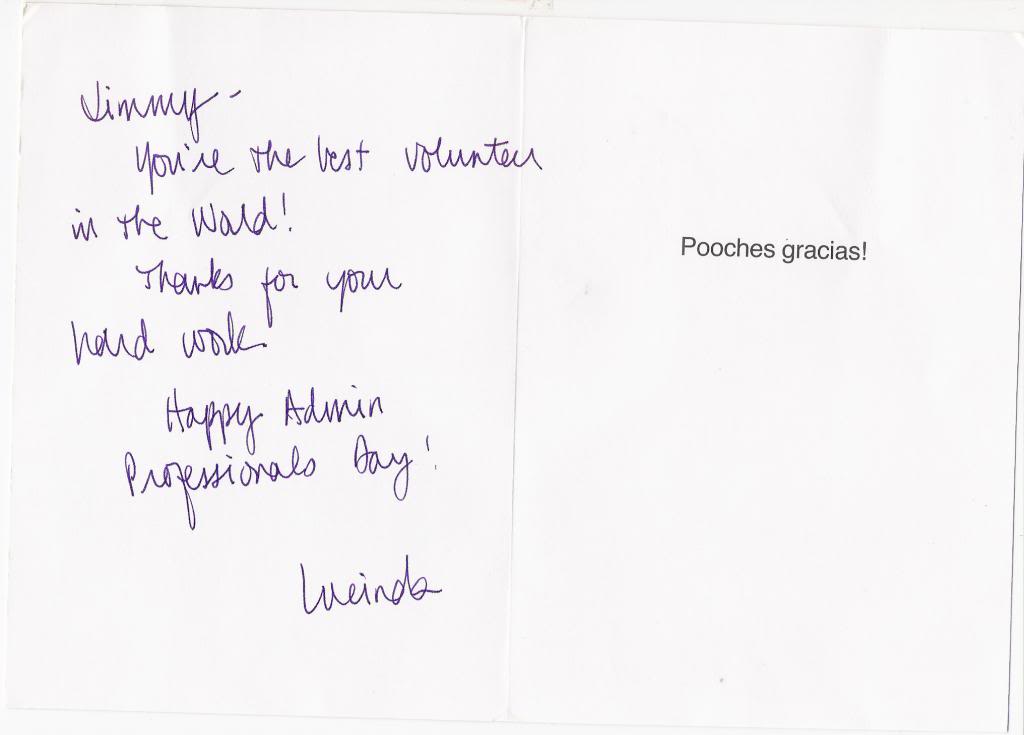 Jimmy -
You're the best volunteer
in the World!
Thanks for your
hard work.
Happy Admin
Professionals Day!
Lucinda
Pooches gracias!